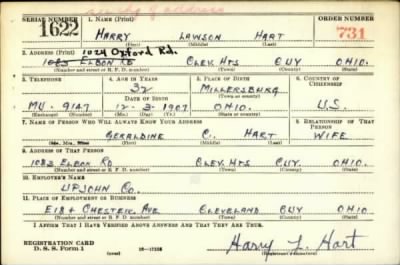 see chg of address
SERIAL NUMBER 1. NAME (Print) ORDER NUMBER
1622 HARRY LAWSON HART 731
(First) (Middle) (Last)
2. ADDRESS (Print) 1024 Oxford Rd.
1083 ELBON RD CLEV. HTS CUY OHIO.
(Number and street or R. F. D. number) (Town) (County) (State)
3. TELEPHONE 4. AGE IN YEARS 5. PLACE OF BIRTH 6. COUNTRY OF CITIZENSHIP
32 MILLERSBURG
DATE OF BIRTH (Town or county)
MU-9147 12-3-1907 OHIO. U.S.
(Exchange) (No.) (Mo.) (Day) (Yr.) (State or country)
7. NAME OF PERSON WHO WILL ALWAYS KNOW YOUR ADDRESS 8. RELATIONSHIP OF THAT PERSON
GERALDINE C. HART WIFE
(Mr., Mrs., Miss) (First) (Middle) (Last)
9. ADDRESS OF THAT PERSON
1083 ELBON RD CLEV. HTS. CUY. OHIO.
(Number and street or R. F. D. number) (Town) (County) (State)
10. EMPLOYER'S NAME
UPJOHN CO.
11. PLACE OF EMPLOYMENT OR BUSINESS
E18 & CHESTER AVE CLEVELAND CUY OHIO
(Number and street or R. F. D. number) (Town) (County) (State)
I AFFIRM THAT I HAVE VERIFIED ABOVE ANSWERS AND THAT THEY ARE TRUE.
REGISTRATION CARD
D. S. S. Form 1 Harry L. Hart
(over) (Registrant's signature)